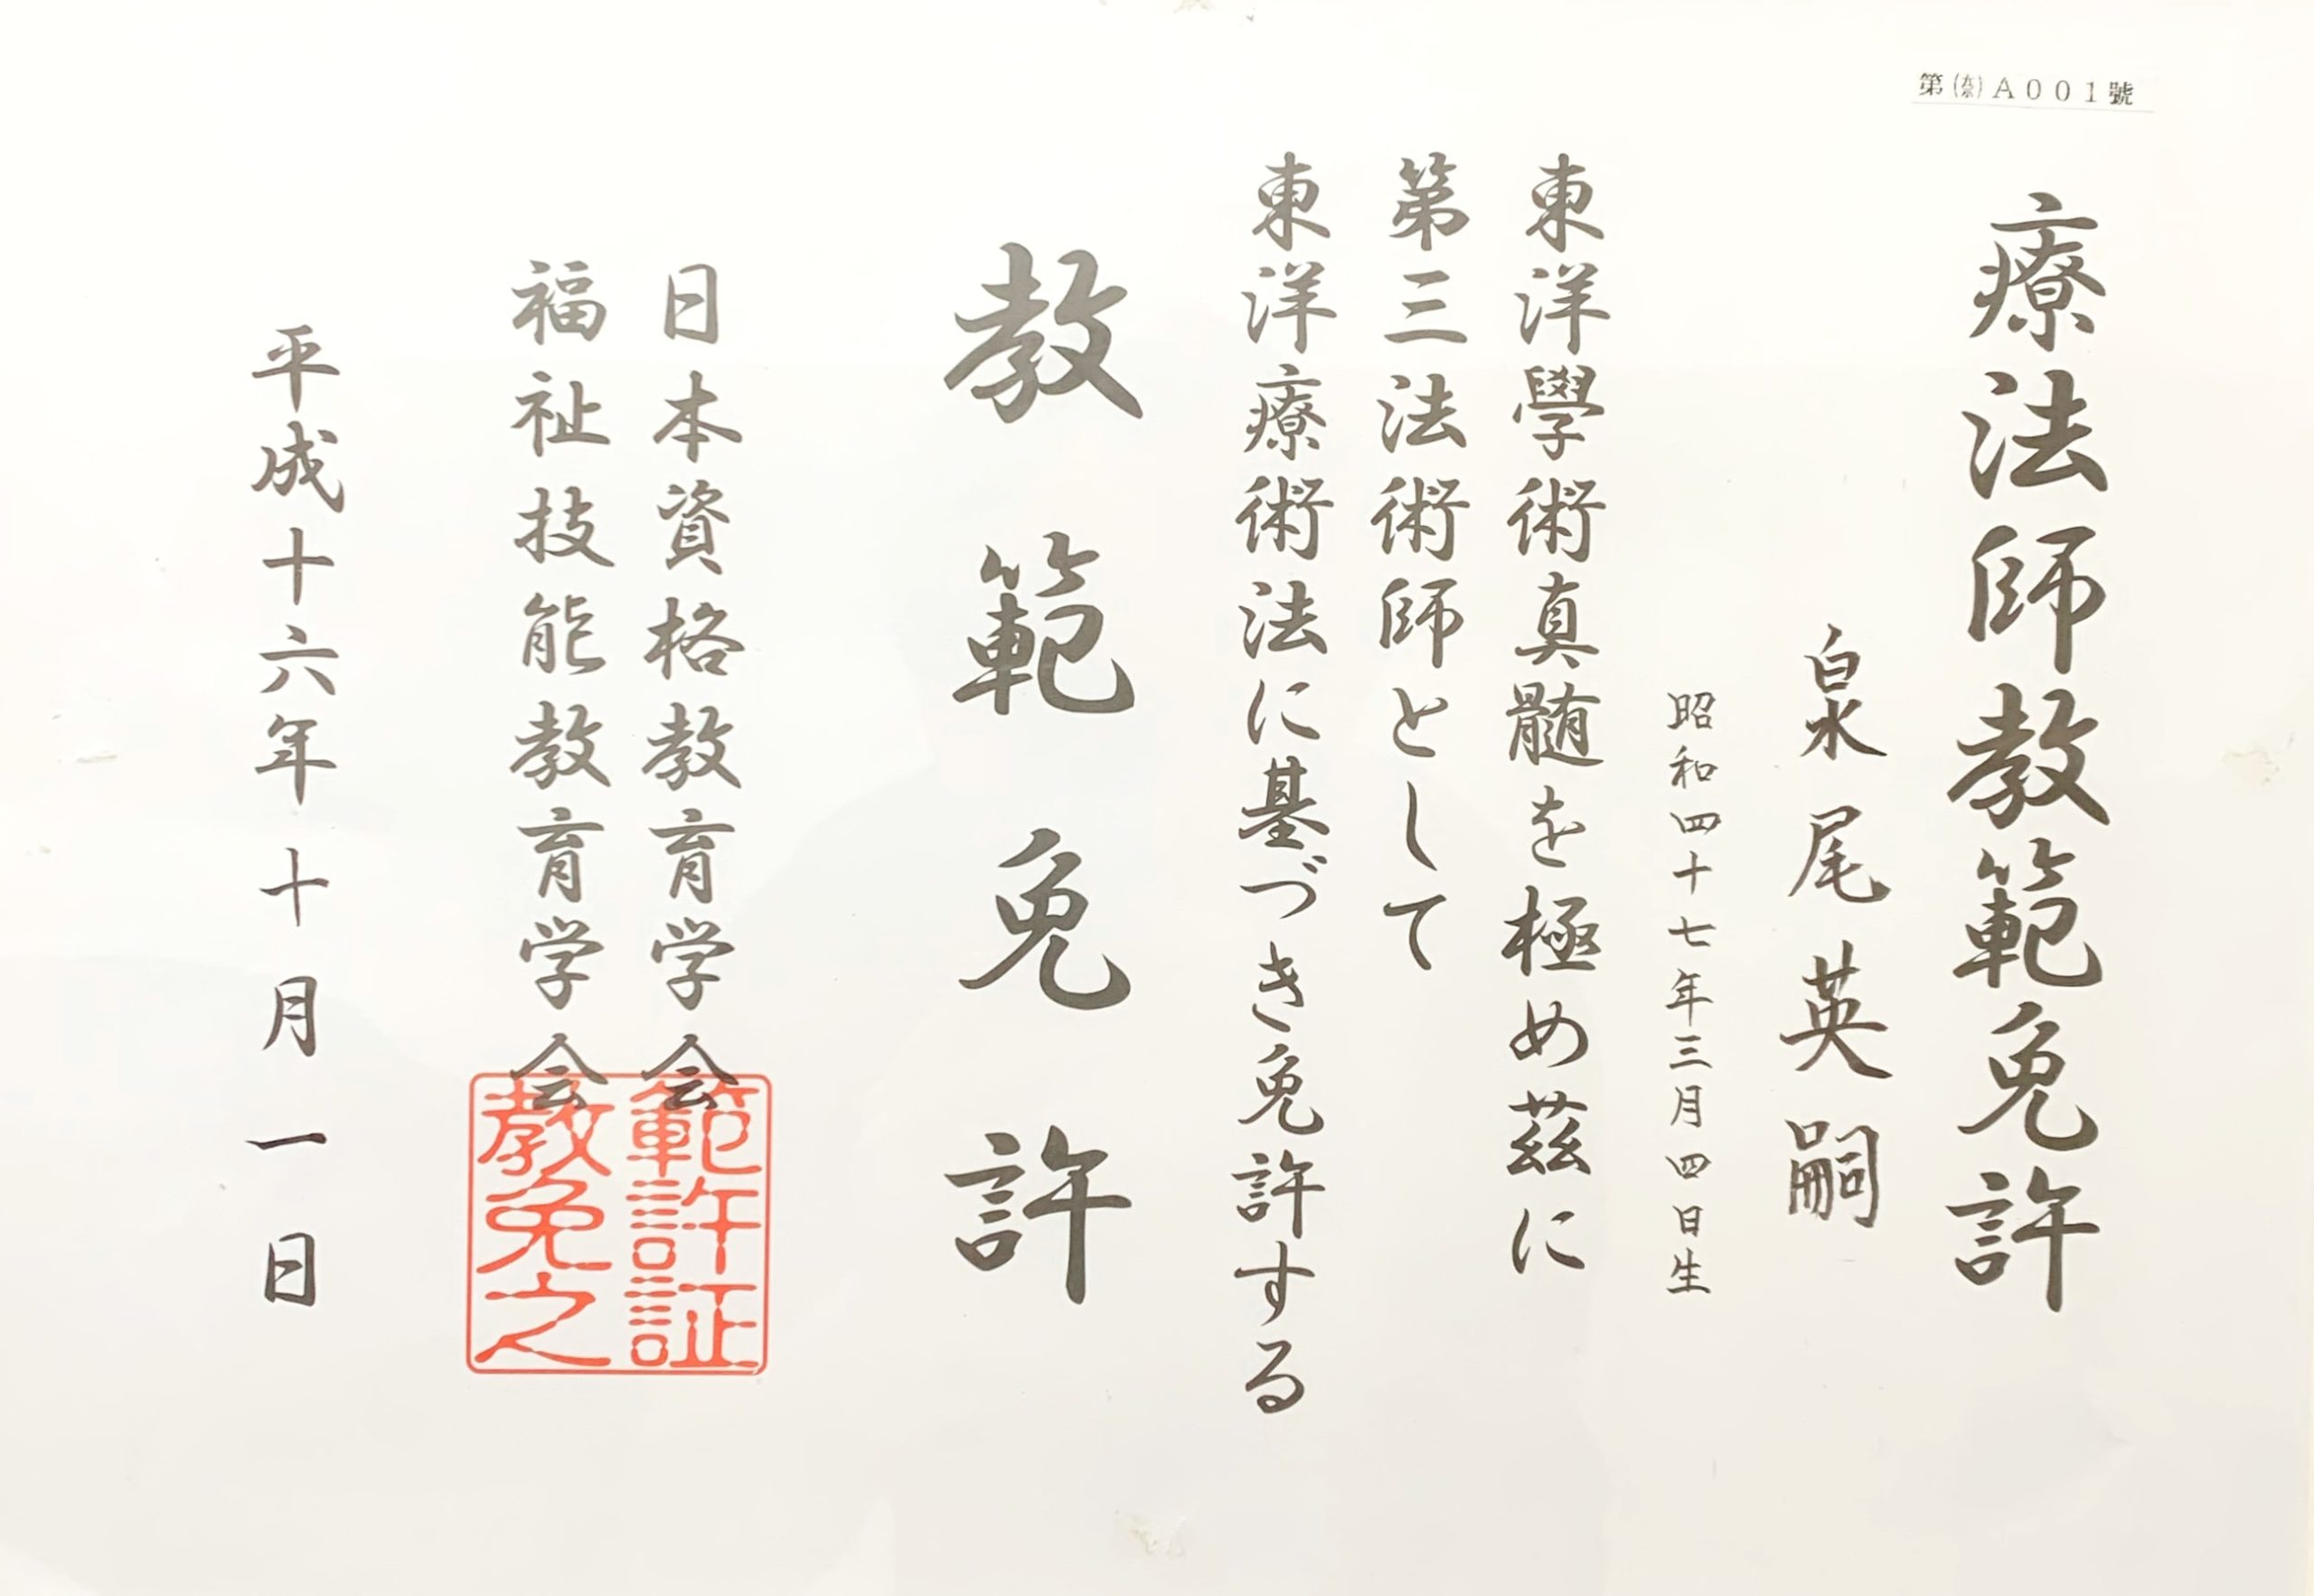 第㊕A001號
療法師教範免許
泉尾英嗣
昭和四十七年三月四日生
東洋學術真髄を極め茲に
第三法術師として
東洋療術法に基づき免許する
教範免許
日本資格教育学会
福祉技能教育学会
範許証
教免之
平成十六年十月一日